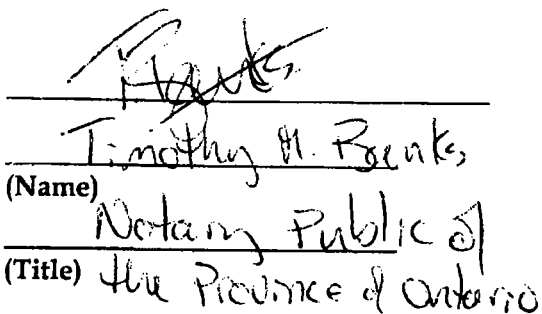 Timothy M. Banks
(Name)
Notary Public of
(Title) the Province of Ontario